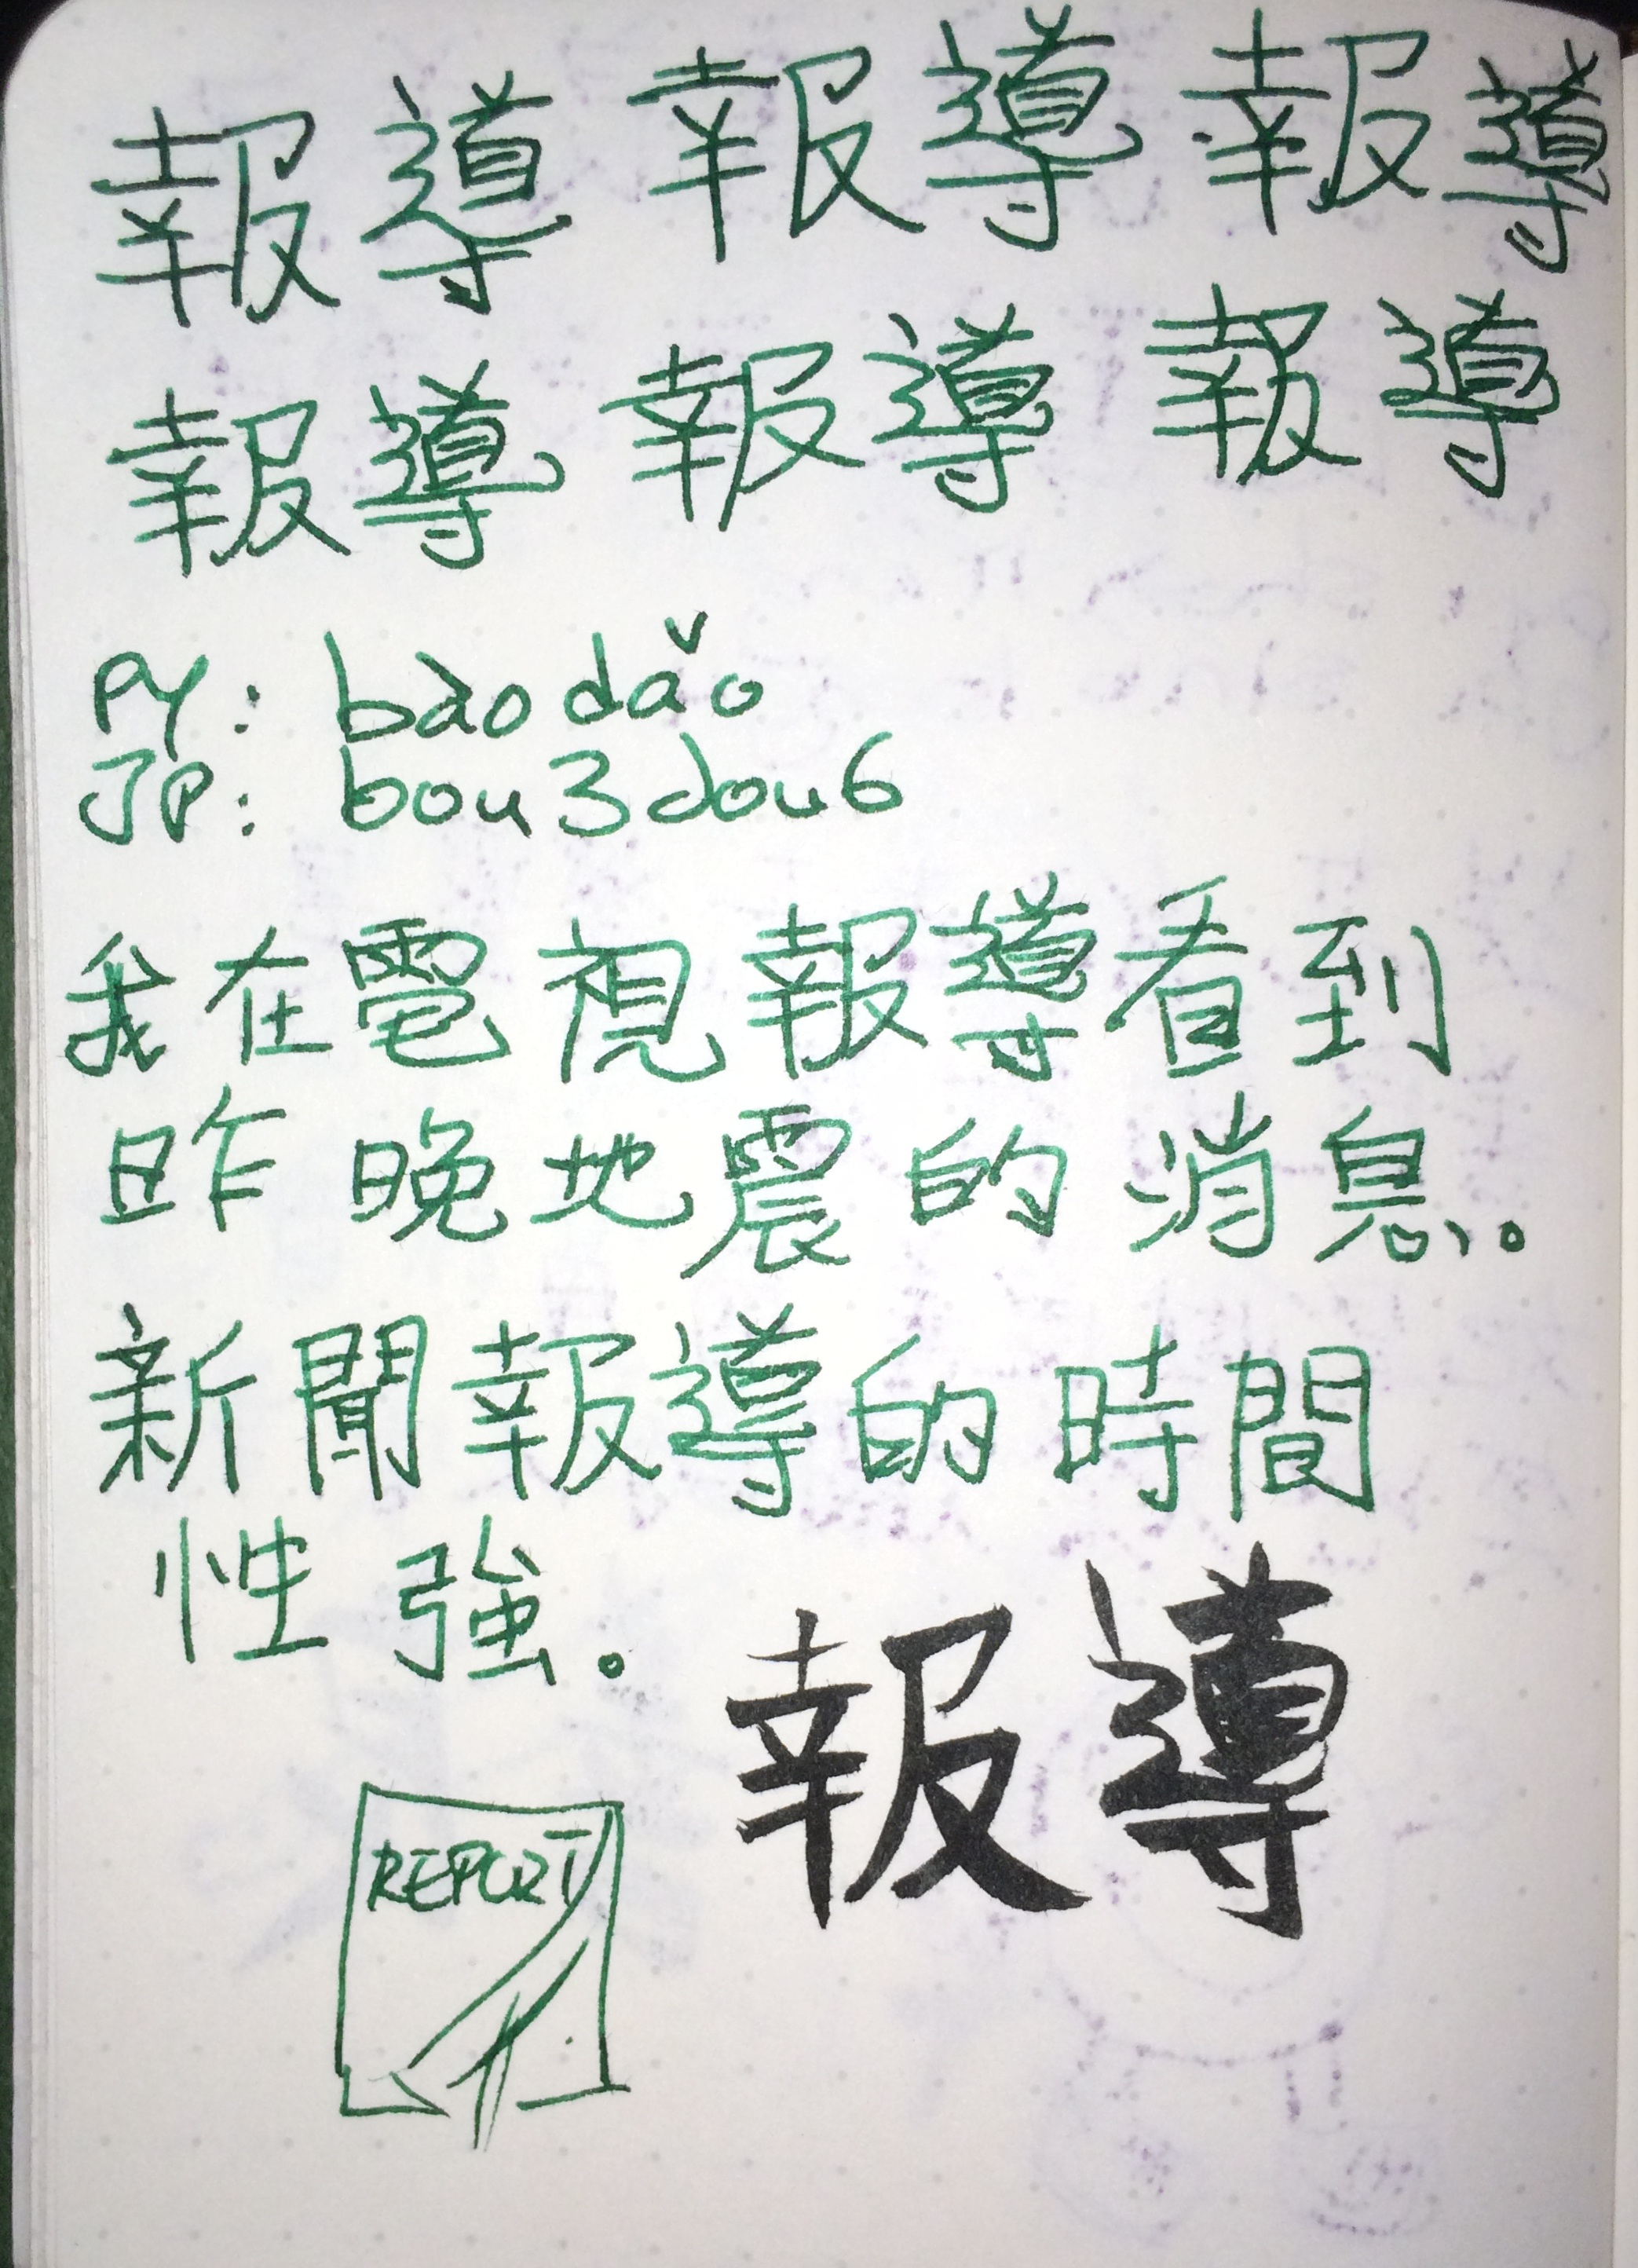 報導 報導 報導
報導 報導 報導
PY: bàodǎo
JP: bou3dou6
我在電視報導看到
昨晚地震的消息。
新聞報導的時間
性強。
報導
REPORT